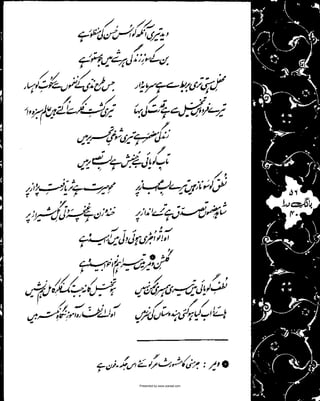 دید تیری آنکھ کو اُس حسن کی منظور ہے
بن کے سوزِ زندگی ہر شے میں جو مستور ہے
محفلِ ہستی تری بربط سے ہے سرمایہ دار
جس طرح ندی کے نغموں سے سکوتِ کوہسار
تیرے فردوسِ تخیل سے ہے قدرت کی بہار
تیری کشتِ فکر سے اُگتے ہیں عالم سبزہ وار
زندگی مضمر ہے تیری شوخیِ تحریر میں
تابِ گویائی سے جنبش ہے لبِ تصویر میں
نطق کو سو ناز ہیں تیرے لبِ اعجاز پر
محوِ حیرت ہے ثریا رفعتِ پرواز پر
شاہدِ مضموں تصدق ہے ترے انداز پر
خندہ زن ہے غنچۂ دلی گلِ شیراز پر
آہ! تو اجڑی ہوئی دلی میں آرامیدہ ہے
گلشنِ ویمر میں تیرا ہم نوا خوابیدہ ہے
لطفِ گویائی میں تیری ہمسری ممکن نہیں
ہو تخیل کا نہ جب تک فکرِ کامل ہم نشیں
ہائے! اب کیا ہو گئی ہندوستاں کی سرزمیں
آہ! اے نظارہ آموزِ نگاہِ نکتہ بیں
ویمر : جرمنی کا مشہور شاعر گوئٹے اس جگہ مدفون ہے
۵۶
بانگِ درا
۴۰
Presented by www.ziaraat.com